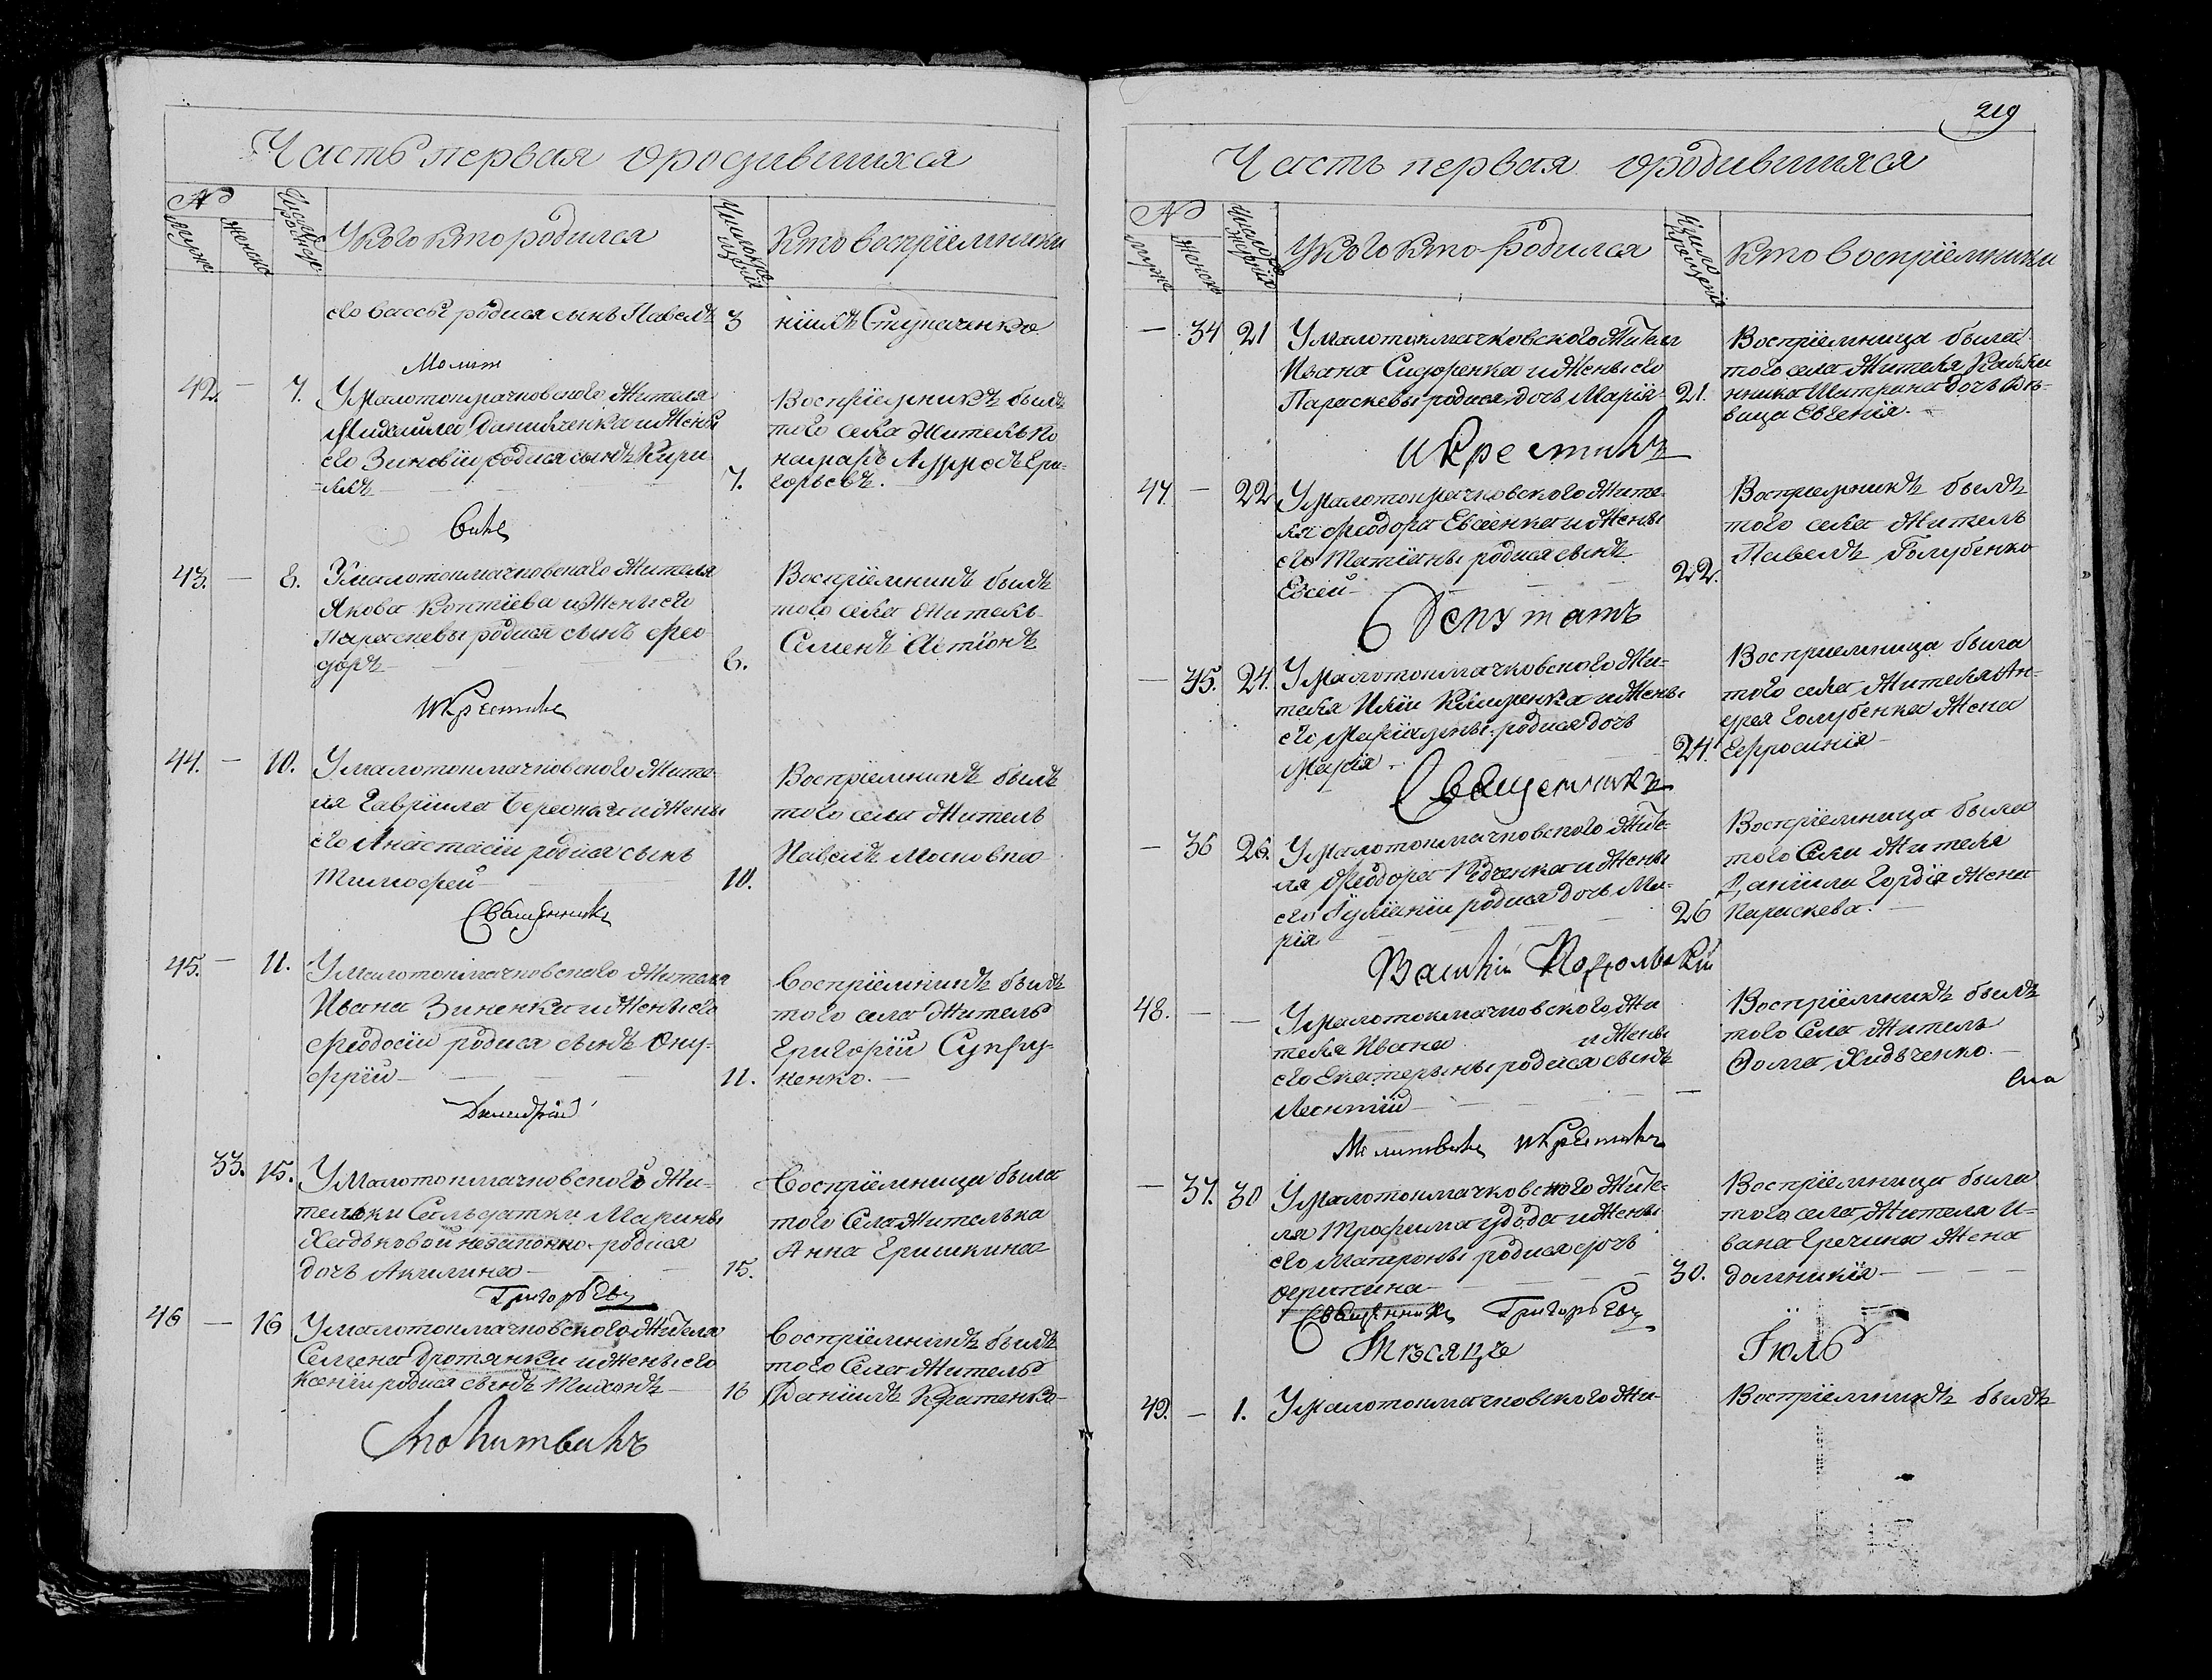 Часть первая ородившихся
№
Мужеска
Женска
Укого кто родился
Кто восприемники
его Вассы родися сынъ Павелъ
3
ниилъ Ступаченко
Молит
42.
—
7.
У малотокмачковского жителя
Михаила Данильченка и жены
его Зиновіи родися сынъ Кири
-лъ
7.
Восприемникъ былъ
того села житель По
номарь Андрей Гри-
горьевъ.
вилъ
43.
—
8.
У малотокмачковского жителя
Якова Коптіева и жены его
Параскевы родися сынъ Фео
доръ
8.
Восприемникъ былъ
того села житель
Семенъ
и крестилъ
44.
—
10.
У малотокмачковского жите
ля Гавріила и жены
его Анастасіи родися сынъ
Тимофей
10.
Восприемникъ былъ
того села житель
Павелъ Московка
Священникъ
45.
—
11.
У малотокмачковского жителя
Ивана Зиненка и жены его
Феодосіи родися сынъ Ону-
фрій
11.
Восприемникъ былъ
того села житель
Григорій Супру-
ненко.
Димитрій
33.
15.
У малотокмачковского жи-
тельки Салдатки Марины
Хадьковой незаконно родися
дочь Акилина
15.
Восприемница была
того села жителька
Анна Гришкина
Григорьевъ
46
—
16
У малотокмачковского жителя
Семена Дротянки и жены его
Ксеніи родися сынъ Тихонъ
16
Восприемникъ былъ
того села житель
Даніилъ
Молитвилъ
219
Часть первая ородившихся
№
Мужеска
Женска
Укого кто родился
Кто восприемники
—
34
21
У малотокмачковского жителя
Ивана Сидоренка и жены его
Параскевы родися дочь Марія
21.
Восприемница была
того села жителя
дочь дѣ-
вица Евгенія.
и Крестилъ
47.
—
22
У малотокмачковского жите-
ля Феодора Евсенка и жены
его Татіаны родися сынъ
Евсей
22.
Восприемникъ былъ
того села житель
Павелъ Голубенко
Депутатъ
—
35.
24.
У малотокмачковского жи-
теля Иліи и жены
его Маріамны родися дочь
Марія
24.
Восприемница была
того села жителя Ан-
дрея Голубенка жена
Ефросинія
Священникъ
—
36
26.
У малотокмачковского жите-
ля Феодора Редченка и жены
его Іуліаніи родися дочь Ма-
рія
26
Восприемница была
того села жителя
Даніила Гордія жена
Параскева.
Василій Подольскій
48.
—
—
У малотокмачковского жи
теля Ивана и жены
его Екатерины родися сынъ
Леонтій
—
Восприемникъ былъ
того села житель
Фома Хидьченко.
Молитвилъ и крестилъ
—
37.
30
У малотокмачковского жите-
ля Трофима Удода и жены
его Матроны родися дочь
Агрипина
30.
Восприемница была
того села жителя И-
вана Гречина жена
Домникія
Священникъ Григорьевъ
Мѣсяцъ
Іюль
49.
—
1.
У малотокмачковского жи-
Восприемникъ былъ